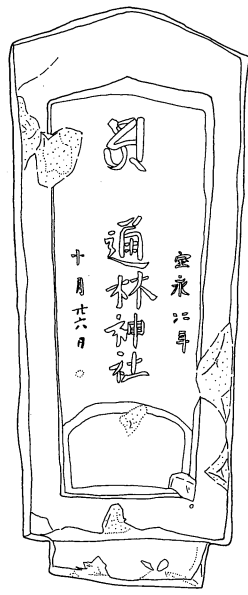 宝永二年
通林神社
十月廿六日